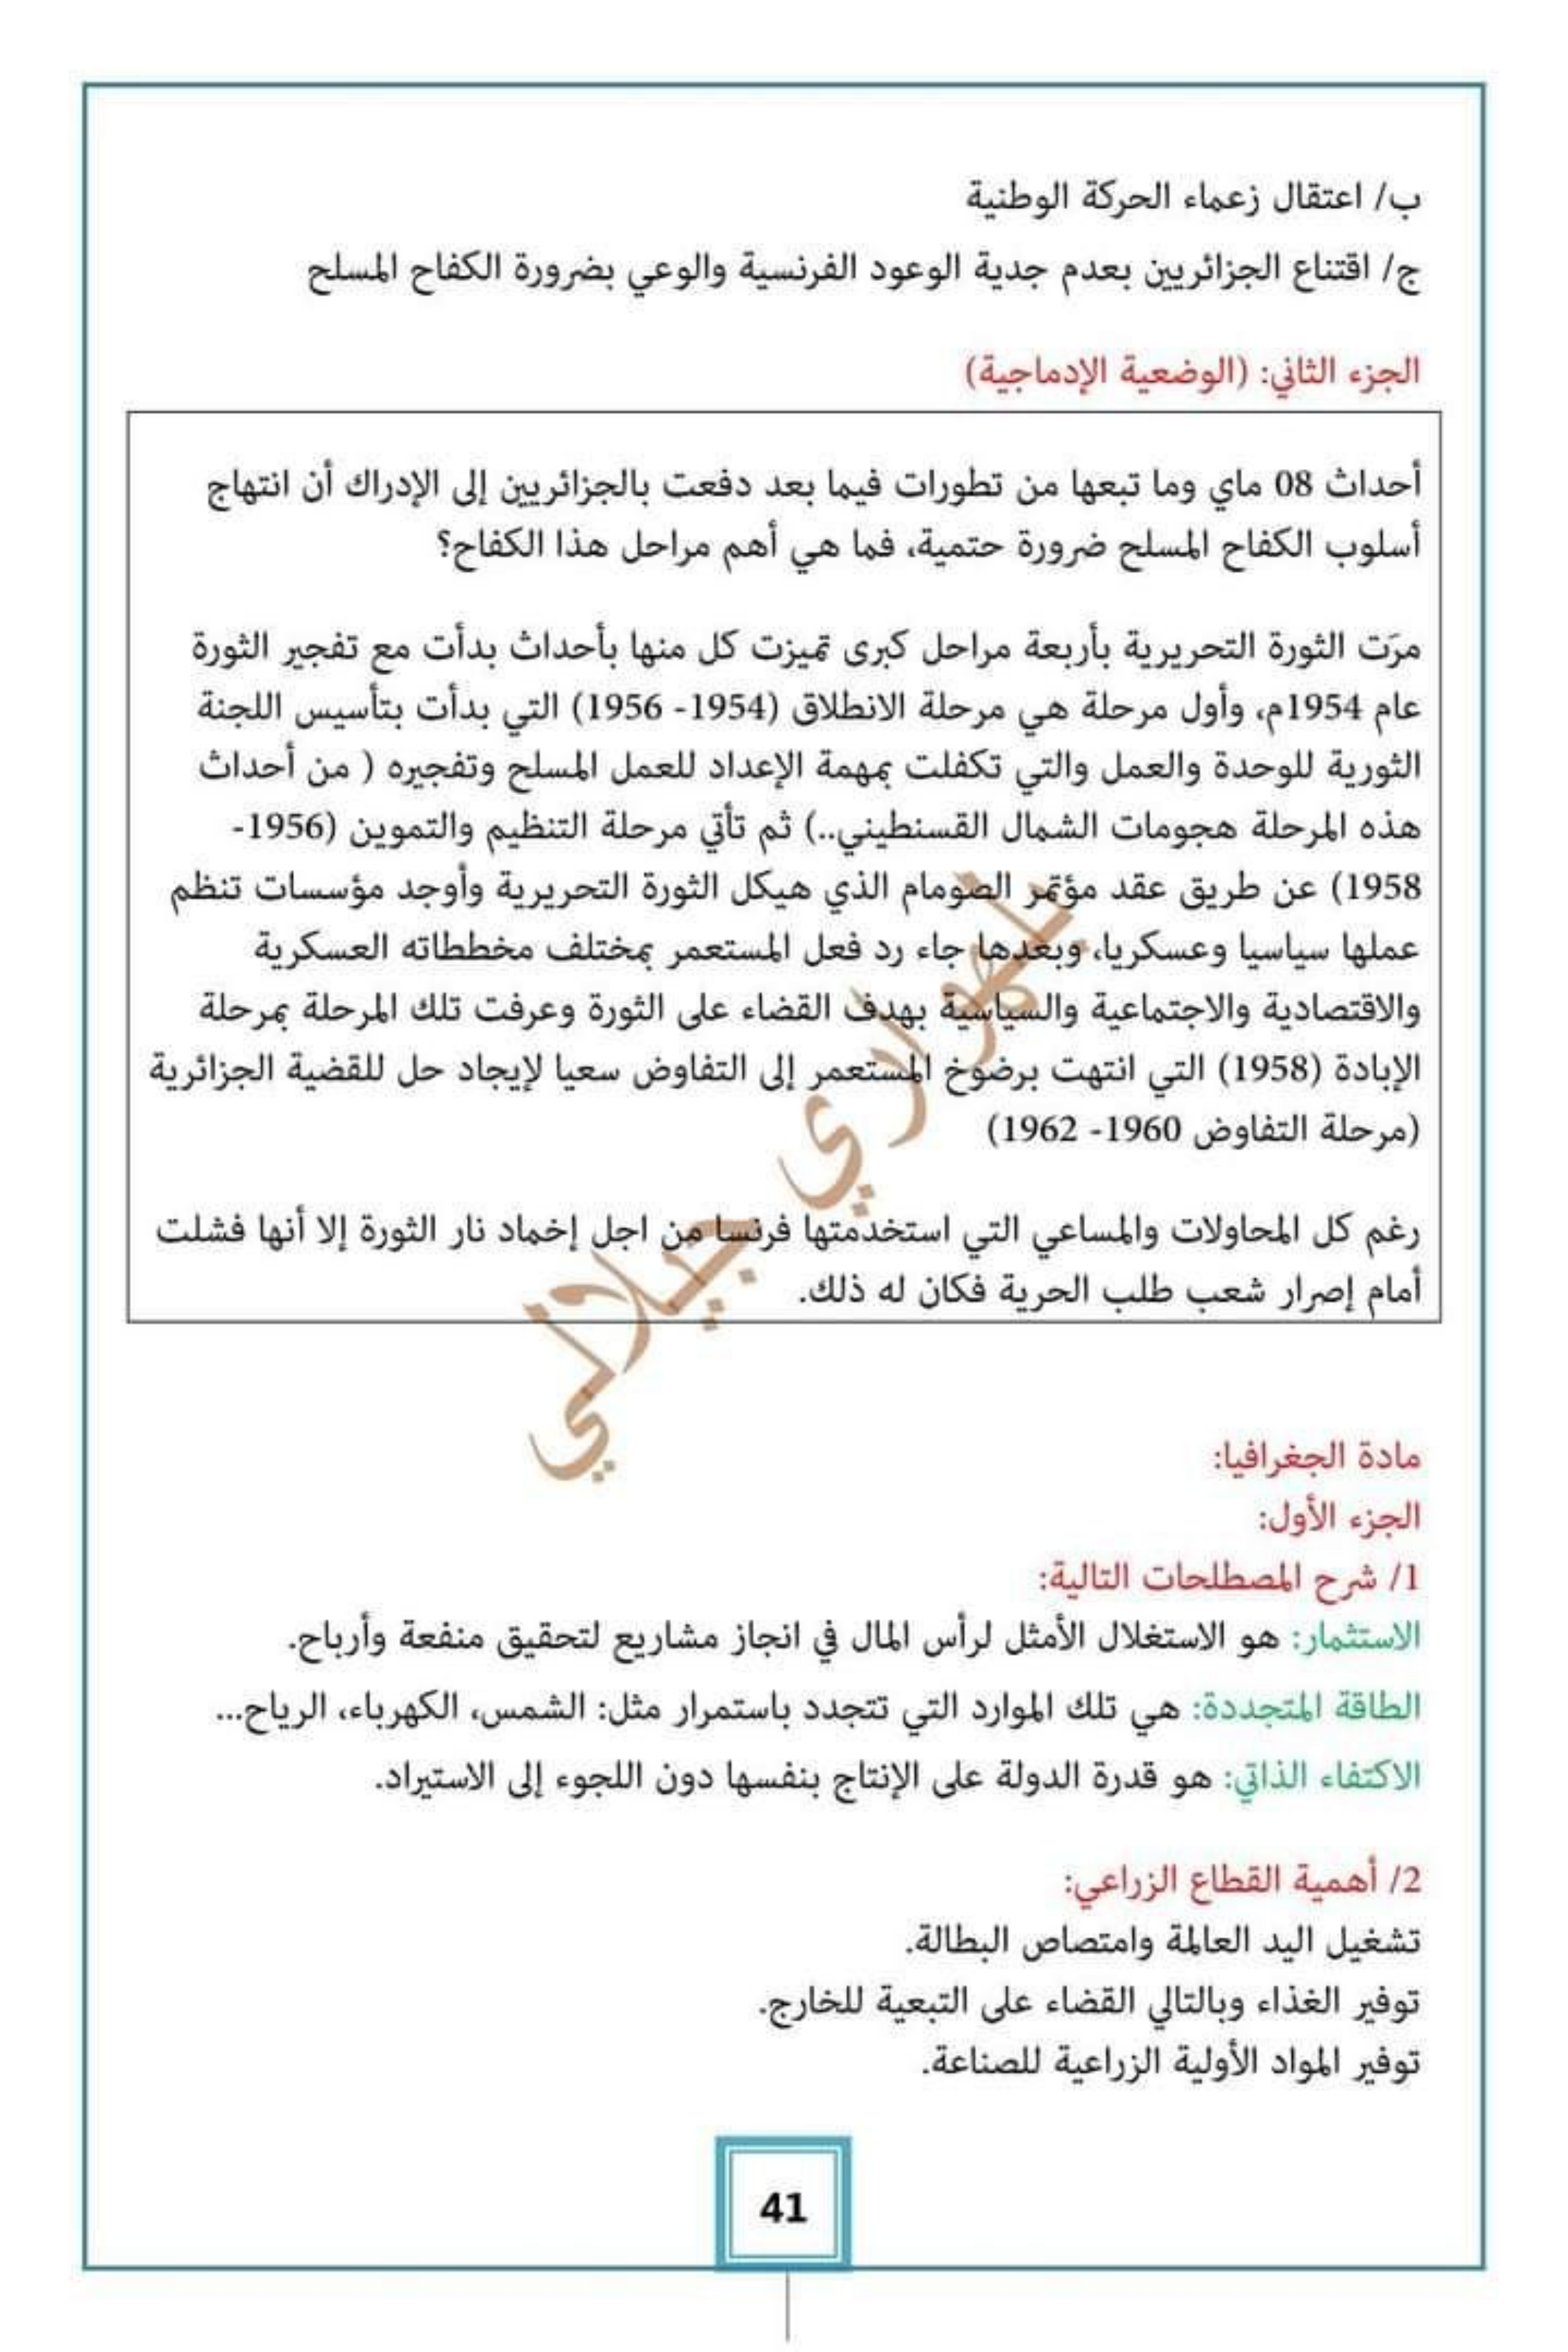 ب/ اعتقال زعماء الحركة الوطنية
ج/ اقتناع الجزائريين بعدم جدية الوعود الفرنسية والوعي بضرورة الكفاح المسلح
الجزء الثاني: (الوضعية الإدماجية)
أحداث 08 ماي وما تبعها من تطورات فيما بعد دفعت بالجزائريين إلى الإدراك أن انتهاج
أسلوب الكفاح المسلح ضرورة حتمية، فما هي أهم مراحل هذا الكفاح؟
مرَت الثورة التحريرية بأربعة مراحل كبرى تميزت كل منها بأحداث بدأت مع تفجير الثورة
عام 1954م، وأول مرحلة هي مرحلة الانطلاق (1954- 1956) التي بدأت بتأسيس اللجنة
الثورية للوحدة والعمل والتي تكفلت بمهمة الإعداد للعمل المسلح وتفجيره ( من أحداث
هذه المرحلة هجومات الشمال القسنطيني..) ثم تأتي مرحلة التنظيم والتموين (1956-
1958) عن طريق عقد مؤتمر الصومام الذي هيكل الثورة التحريرية وأوجد مؤسسات تنظم
عملها سياسيا وعسكريا، وبعدها جاء رد فعل المستعمر بمختلف مخططاته العسكرية
والاقتصادية والاجتماعية والسياسية بهدف القضاء على الثورة وعرفت تلك المرحلة بمرحلة
الإبادة (1958) التي انتهت برضوخ المستعمر إلى التفاوض سعيا لإيجاد حل للقضية الجزائرية
(مرحلة التفاوض 1960- 1962)
رغم كل المحاولات والمساعي التي استخدمتها فرنسا من اجل إخماد نار الثورة إلا أنها فشلت
أمام إصرار شعب طلب الحرية فكان له ذلك.
جيلالي
مادة الجغرافيا:
الجزء الأول:
1/ شرح المصطلحات التالية:
الاستثمار: هو الاستغلال الأمثل لرأس المال في انجاز مشاريع لتحقيق منفعة وأرباح.
الطاقة المتجددة: هي تلك الموارد التي تتجدد باستمرار مثل: الشمس، الكهرباء، الرياح...
الاكتفاء الذاتي: هو قدرة الدولة على الإنتاج بنفسها دون اللجوء إلى الاستيراد.
2/ أهمية القطاع الزراعي:
تشغيل اليد العاملة وامتصاص البطالة.
توفير الغذاء وبالتالي القضاء على التبعية للخارج.
توفير المواد الأولية الزراعية للصناعة.
41